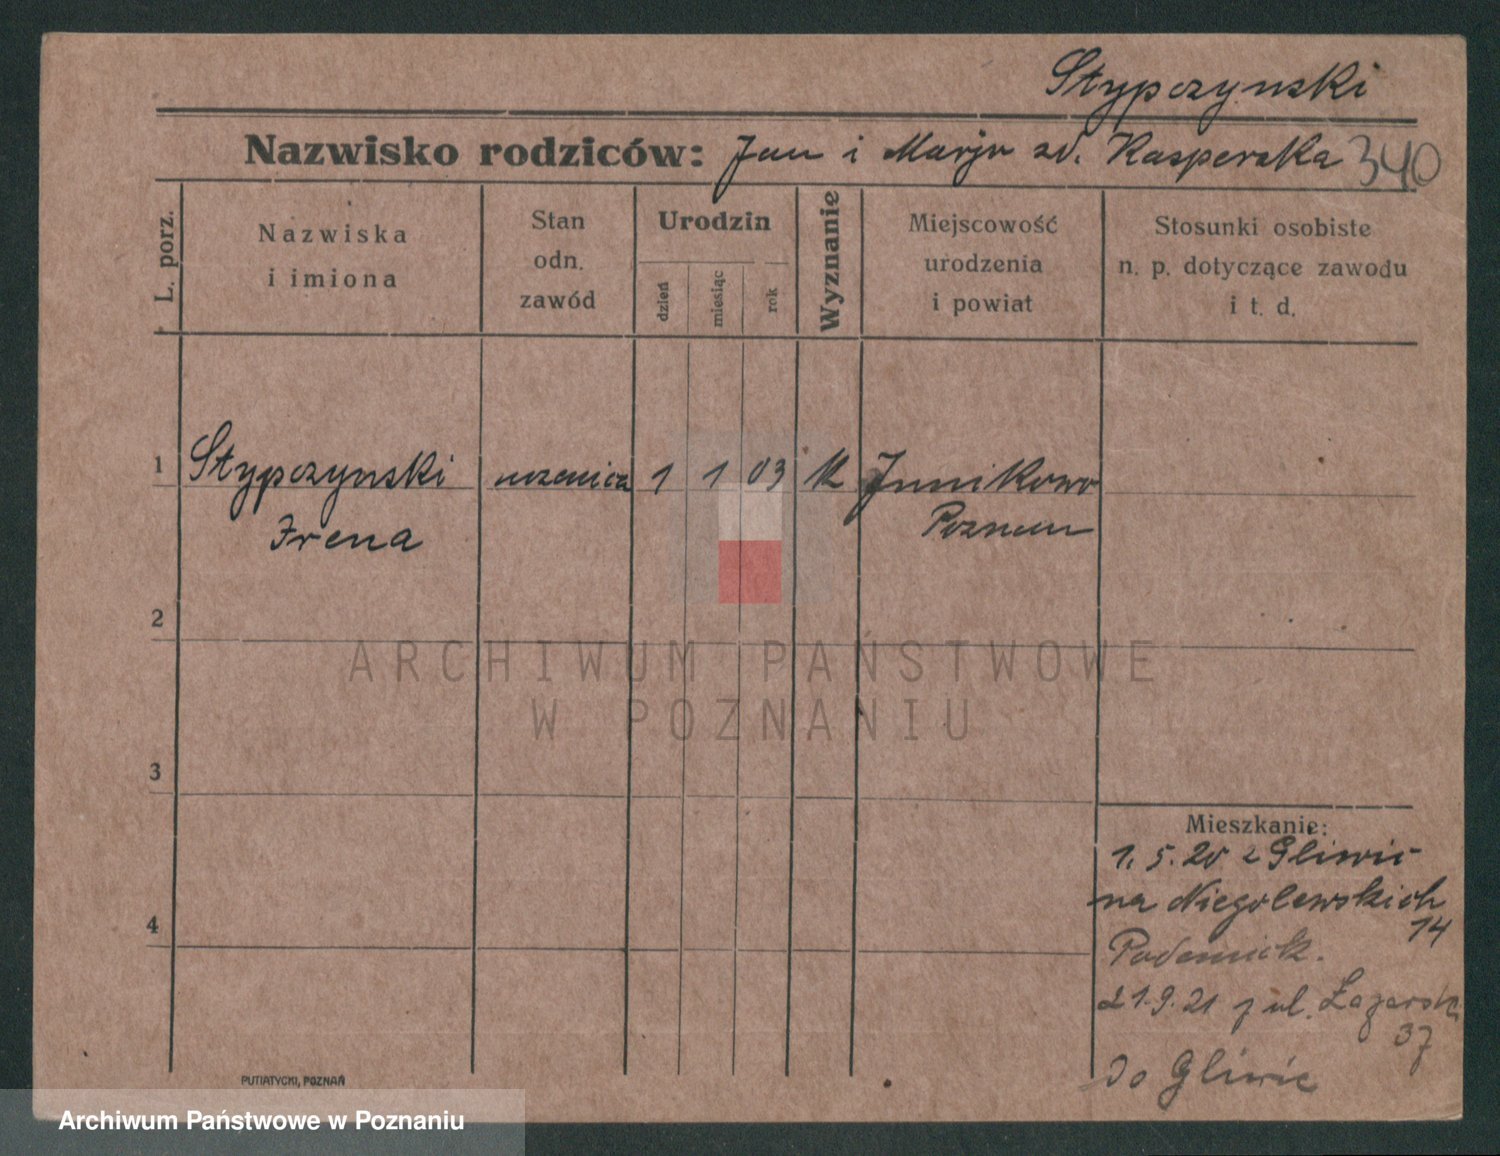 Stypczynski
Nazwisko rodziców: Jan i Marja zd. Kasperska 340
L. porz.
Nazwiska
i imiona
Stan
odn.
zawód
Urodzin
dzień
miesiąc
rok
Wyznanie
Miejscowość
urodzenia
i powiat
Stosunki osobiste
n. p. dotyczące zawodu
i t. d.
1 Stypczynski uczenica 1 1 03 K Junikowo
Irena Poznan
2
ARCHIWUM PAŃSTWOWE
W POZNANIU
3
Mieszkanie:
1. 5. 20 z Gliwic
na Niegolewskich
14
4
21.9.21 z ul. Łazarska
37
do Gliwic
PUTIATYCKI, POZNAŃ
Archiwum Państwowe w Poznaniu